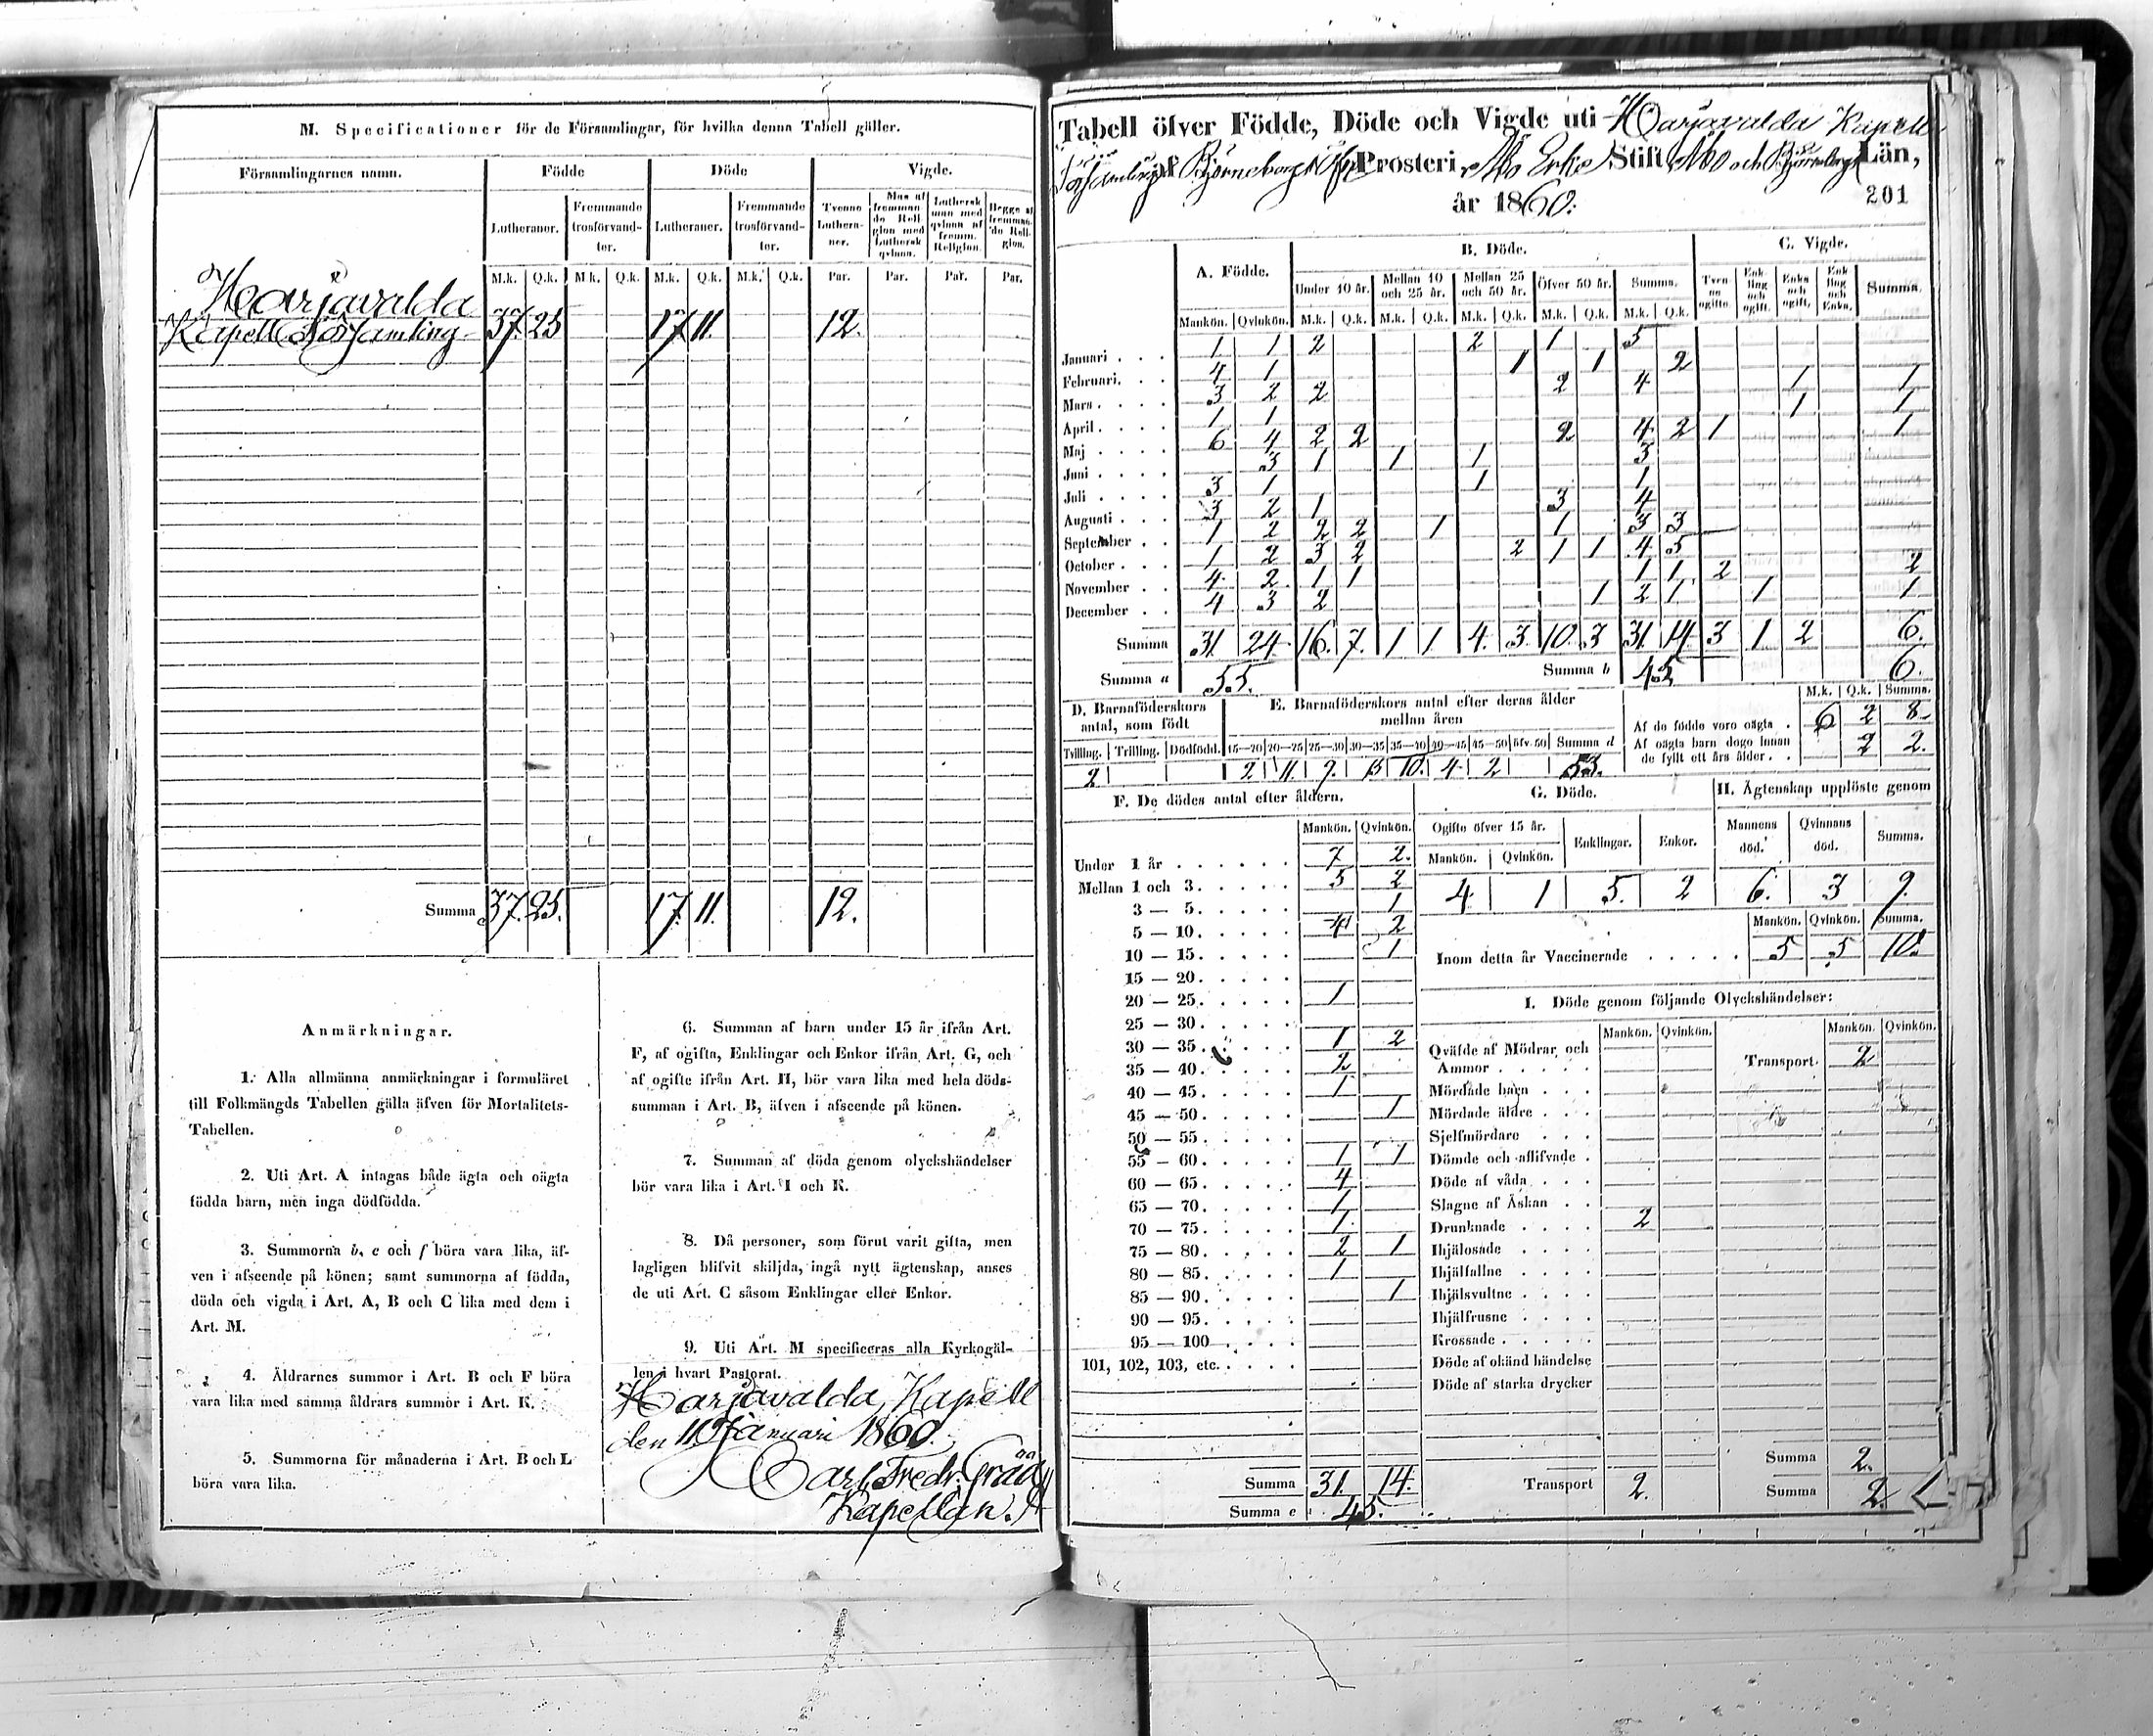 M. Specificationer för de Församlingar, för hvilka denna Tabell gäller.
Församlingarnes namn. Födde Döde Vigde.
Lutheraner. Fremmande trosförvandter. Lutheraner. Fremmande trosförvandter. Tvenne Lutheraner. Man af fremmande Religion med Luthersk qvinna. Luthersk man med qvinna af fremm. Religion. Begge af fremmande Religion.
M.k. Q.k. M.k. Q.k. M.k. Q.k. M.k. Q.k. Par. Par. Par. Par.
Harjavalda
Kapell Församling 37. 25 17 11. 12.
Summa 37. 25. 17. 11. 12.
Anmärkningar.
1. Alla allmänna anmärkningar i formuläret
till Folkmängds Tabellen gälla äfven för Mortalitets-
Tabellen.
2. Uti Art. A intagas både ägta och oägta
födda barn, men inga dödfödda.
3. Summorna b, e och f böra vara lika, äf-
ven i afseende på könen; samt summorna af födda,
döda och vigda i Art. A, B och C lika med dem i
Art. M.
4. Åldrarnes summor i Art. B och F böra
vara lika med samma åldrars summor i Art. K.
5. Summorna för månaderna i Art. B och L
böra vara lika.
6. Summan af barn under 15 år ifrån Art.
F, af ogifta, Enklingar och Enkor ifrån Art. G, och
af ogifte ifrån Art. H, bör vara lika med hela döds-
summan i Art. B, äfven i afseende på könen.
7. Summan af döda genom olyckshändelser
bör vara lika i Art. I och K.
8. Då personer, som förut varit gifta, men
lagligen blifvit skiljda, ingå nytt ägtenskap, anses
de uti Art. C såsom Enklingar eller Enkor.
9. Uti Art. M specificeras alla Kyrkogäl-
len i hvart Pastorat.
Harjavalda Kapell
den 11 Januari 1860.
Carl Fredr.
Kapellan.
Tabell öfver Födde, Döde och Vigde uti Harjavalda Kapell
Församling af Björneborgs Prosteri, Åbo Erke Stift, Åbo och Björneborgs Län,
år 1860.
201
A. Födde. B. Döde. C. Vigde.
Under 10 år. Mellan 10 och 25 år. Mellan 25 och 50 år. Öfver 50 år. Summa. Tvenne ogifte. Enkling och ogift. Enka och ogift. Enkling och Enka. Summa.
Mankön. Qvinkön. M.k. Q.k. M.k. Q.k. M.k. Q.k. M.k. Q.k. M.k. Q.k.
Januari . . . 1 1 2 2 1 5
Februari. . . 4 1 1 1 2
Mars . . . . 3 2 2 2 4 1 1
April . . . . 1 1 1 1
Maj . . . . 6 4 2 2 2 4 2 1 1
Juni . . . . 3 1 1 1 3
Juli . . . . 3 1 1 1
Augusti . . . 3 2 1 3 4
September . . 1 2 2 2 1 1 3 3
October . . . 1 2 3 2 2 1 1 4 5
November . . 4 2 1 1 1 1 2 2
December . . 4 3 2 1 2 1 1 1
Summa 31. 24 16. 7. 1 1 4. 3. 10. 3 31 14. 3 1 2 6.
Summa a 55. Summa b 45 6.
D. Barnaföderskors antal, som födt
Tvilling. Trilling. Dödfödd.
2
E. Barnaföderskors antal efter deras ålder mellan åren
15—20 20—25 25—30 30—35 35—40 40—45 45—50 öfv. 50 Summa d
2 11. 9. 15 10. 4 2 53.
M.k. Q.k. Summa.
Af de födde voro oägta . 6 2 8
Af oägta barn dogo innan
de fyllt ett års ålder . . 2 2.
F. De dödes antal efter åldern.
Mankön. Qvinkön.
Under 1 år . . . . . . 7 2.
Mellan 1 och 3. . . . . 5 2
3 — 5. . . . . 1
5 — 10. . . . . 4 2
10 — 15. . . . . 1
15 — 20. . . . .
20 — 25. . . . . 1
25 — 30. . . . .
30 — 35. . . . . 1 2
35 — 40. . . . . 2
40 — 45. . . . . 1
45 — 50. . . . . 1
50 — 55. . . . .
55 — 60. . . . . 1 1
60 — 65. . . . . 4
65 — 70. . . . . 1
70 — 75. . . . . 1
75 — 80. . . . . 2 1
80 — 85. . . . . 1
85 — 90. . . . . 1
90 — 95. . . . .
95 — 100 . . . .
101, 102, 103, etc. . . . .
Summa 31. 14.
Summa e 45.
G. Döde.
Ogifte öfver 15 år. Enklingar. Enkor.
Mankön. Qvinkön.
4 1 5. 2
H. Ägtenskap upplöste genom
Mannens död. Qvinnans död. Summa.
6. 3 9.
Mankön. Qvinkön. Summa.
Inom detta år Vaccinerade . . . . . 5 5 10.
I. Döde genom följande Olyckshändelser:
Mankön. Qvinkön. Mankön. Qvinkön.
Qväfde af Mödrar och
Ammor . . . . . Transport. 2
Mördade barn . . .
Mördade äldre . . .
Sjelfmördare . . .
Dömde och aflifvade .
Döde af våda . . .
Slagne af Åskan . .
Drunknade . . . . 2
Ihjälosade . . . .
Ihjälfallne . . . .
Ihjälsvultne . . . .
Ihjälfrusne . . . .
Krossade . . . . .
Döde af okänd händelse
Döde af starka drycker
Summa 2.
Transport 2. Summa 2.